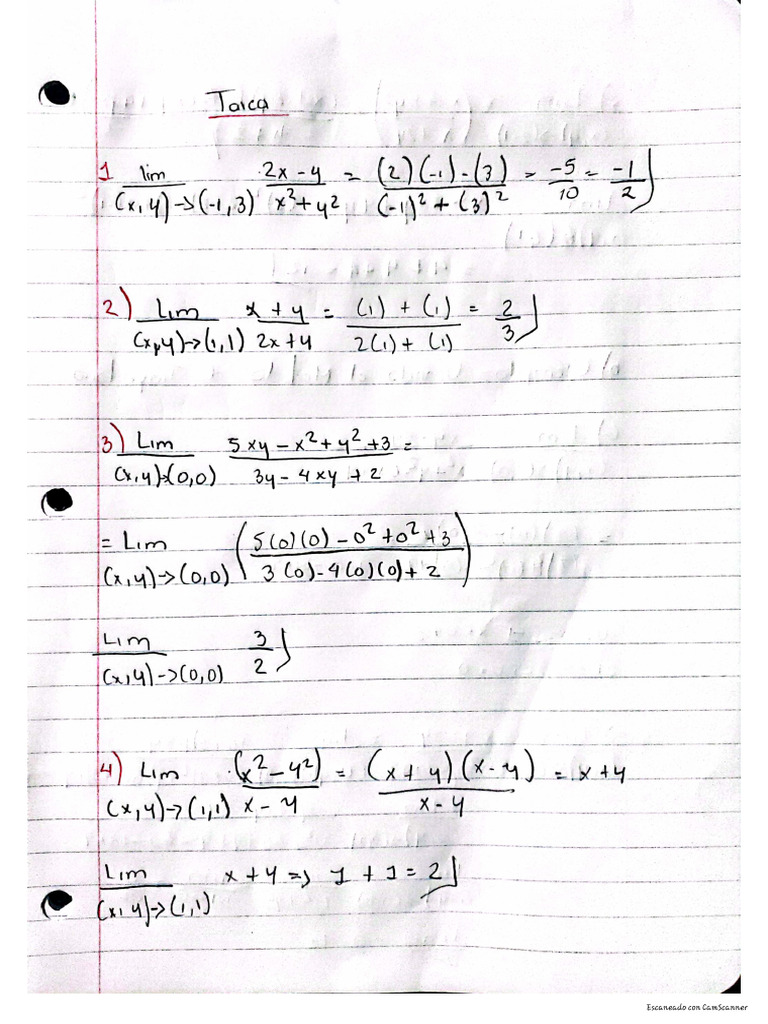 Tarea
1 lim (x,y)→(-1,3) 2x-y / x²+y² = (2)(-1)-(3) / (-1)²+(3)² = -5/10 = -1/2
2) Lim (x,y)→(1,1) x+y / 2x+y = (1)+(1) / 2(1)+(1) = 2/3
3) Lim (x,y)→(0,0) 5xy-x²+y²+3 / 3y-4xy+2 =
= Lim (x,y)→(0,0) (5(0)(0)-0²+0²+3 / 3(0)-4(0)(0)+2)
Lim (x,y)→(0,0) 3/2
4) Lim (x,y)→(1,1) (x²-y²) / x-y = (x+y)(x-y) / x-y = x+y
Lim (x,y)→(1,1) x+y => 1+1=2
Escaneado con CamScanner